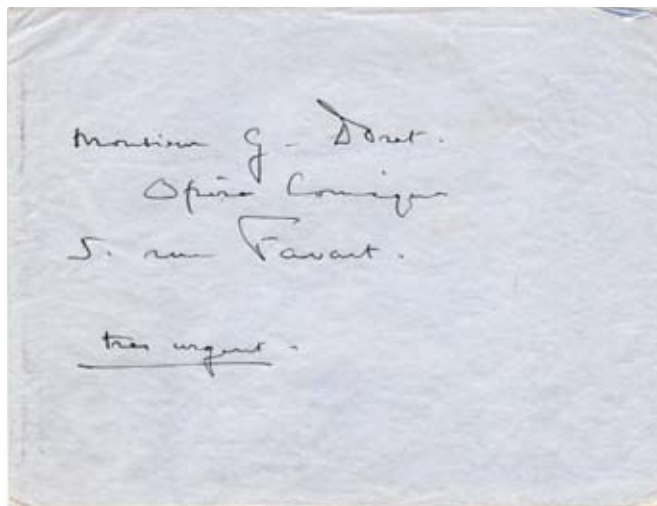 Monsieur G - Doret.
Opéra Comique
5. rue Favart.
très urgent -